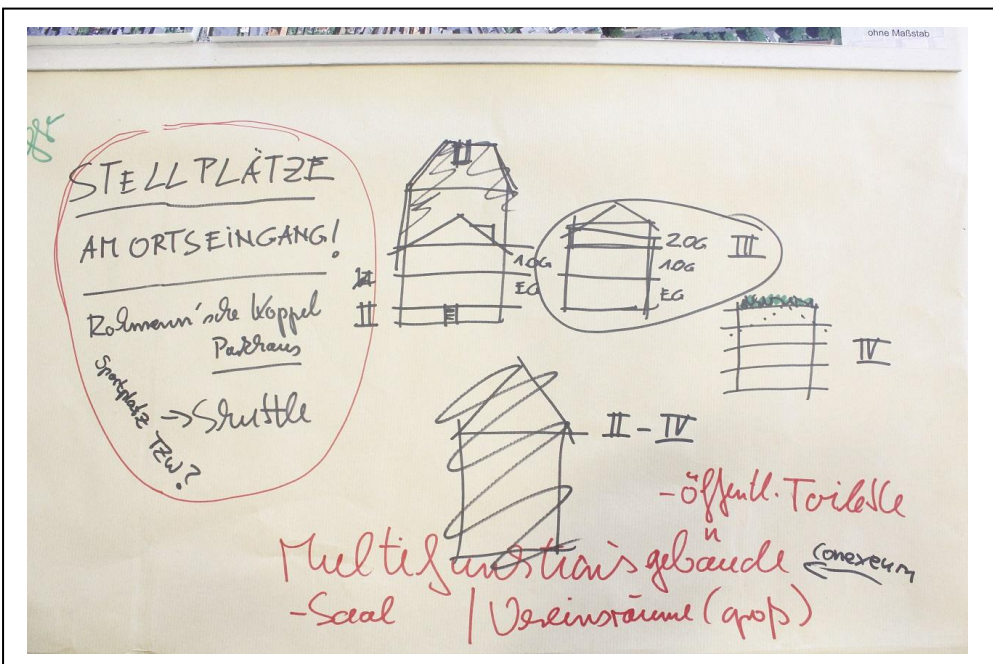 ohne Maßstab
STELLPLÄTZE
AM ORTSEINGANG!
Rolmann'sche Koppel
Parkhaus
Sportplatz TZW?
→ Shuttle
II
1.OG
EG
II
2.OG
1.OG
EG
III
IV
II - IV
- öffentl. Toilette
Multifunktionsgebäude ← Conexeum
- Saal | Vereinsräume (groß)